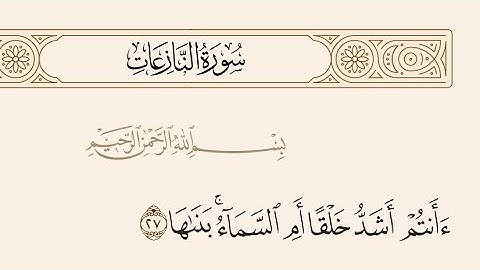 سُورَةُ النَّازِعَاتِ
بِسْمِ اللَّهِ الرَّحْمَٰنِ الرَّحِيمِ
ءَأَنتُمْ أَشَدُّ خَلْقًا أَمِ ٱلسَّمَآءُ ۚ بَنَىٰهَا ٢٧